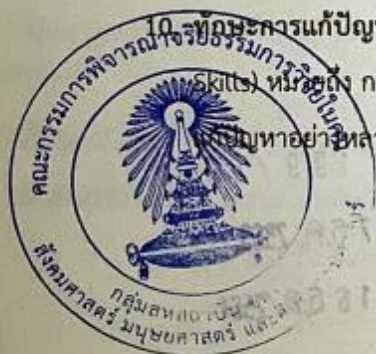 10. ทักษะการแก้ปัญ
Skills) หมายถึง ก
แก้ปัญหาอย่างหลา
คณะกรรมการพิจารณาจริยธรรมการวิจัยในค
กลุ่มสหสถาบัน
สังคมศาสตร์ มนุษยศาสตร์ และศ